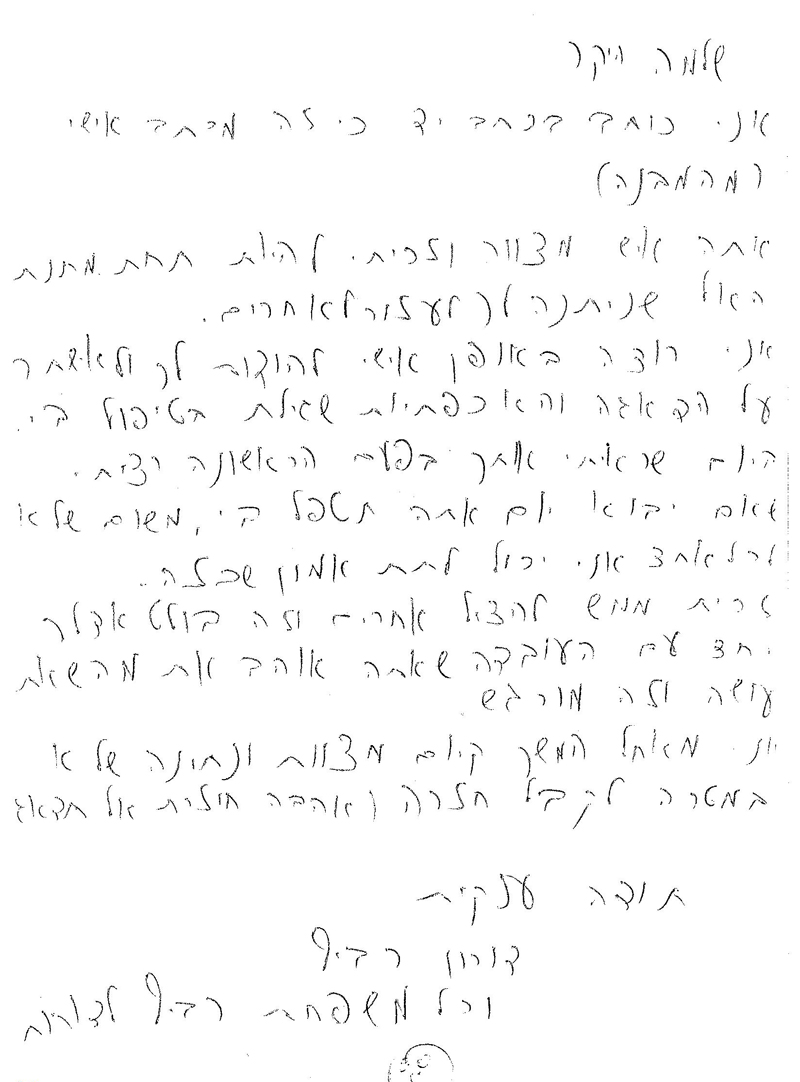 שלמה היקר
אני כותב בכתב יד כי זה מכתב אישי
(מהמבנה)
אתה איש מצוות וזכית להיות תחת מתנת
האל שניתנה לך לעזור לאחרים.
אני רוצה באופן אישי להודות לך ולאישתך
על הדאגה והאכפתיות שגילת בטיפול בי.
היום שראיתי אותך בפעם הראשונה רציתי
שאם יבוא יום אתה תטפל בי, משום שלא
לכל אחד אני יכול לתת אמון שכזה.
זכית ממש להציל אחרים וזה בולט אצלך
יחד עם העובדה שאתה אוהב את מה שאת
עושה וזה מורגש.
אני מאחל המשך קיום מצוות ונתינה שלא
במטרה לקבל חזרה (אהבה חולית אל תדאג
תודה ענקית
דורון רביף
וכל משפחת רביף לדורות